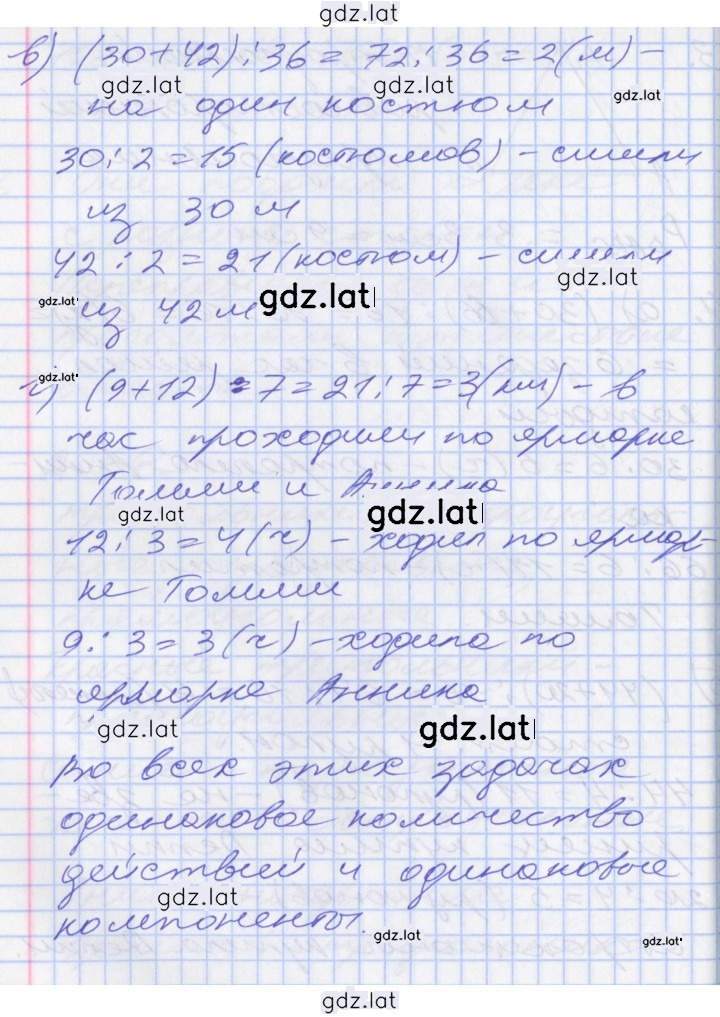 gdz.lat
в) (30+42):36=72:36=2(м)-
gdz.lat gdz.lat gdz.lat
на один костюм
30:2=15 (костюмов) - сшили
из 30 м
42:2=21 (костюм) - сшили
gdz.lat
gdz.lat gdz.lat
из 42 м
gdz.lat
г) (9+12):7=21:7=3(км) - в
час проходили по ярмарке
Томми и Анника
gdz.lat gdz.lat
12:3=4(ч) - ходил по ярмар-
ке Томми
9:3=3(ч) - ходила по
ярмарке Анника
gdz.lat gdz.lat
Во всех этих задачах
одинаковое количество
действий и одинаковые
gdz.lat
компоненты.
gdz.lat gdz.lat
gdz.lat